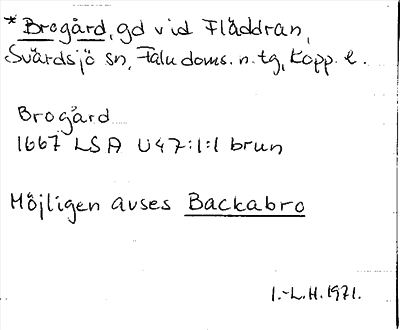 *Brogård, gd vid Fläddran,
Svärdsjö sn, Falu doms. n. tg, Kopp. l.
Brogård
1667 LSA U47:1:1 brun
Möjligen avses Backabro
I.-L.H. 1971.